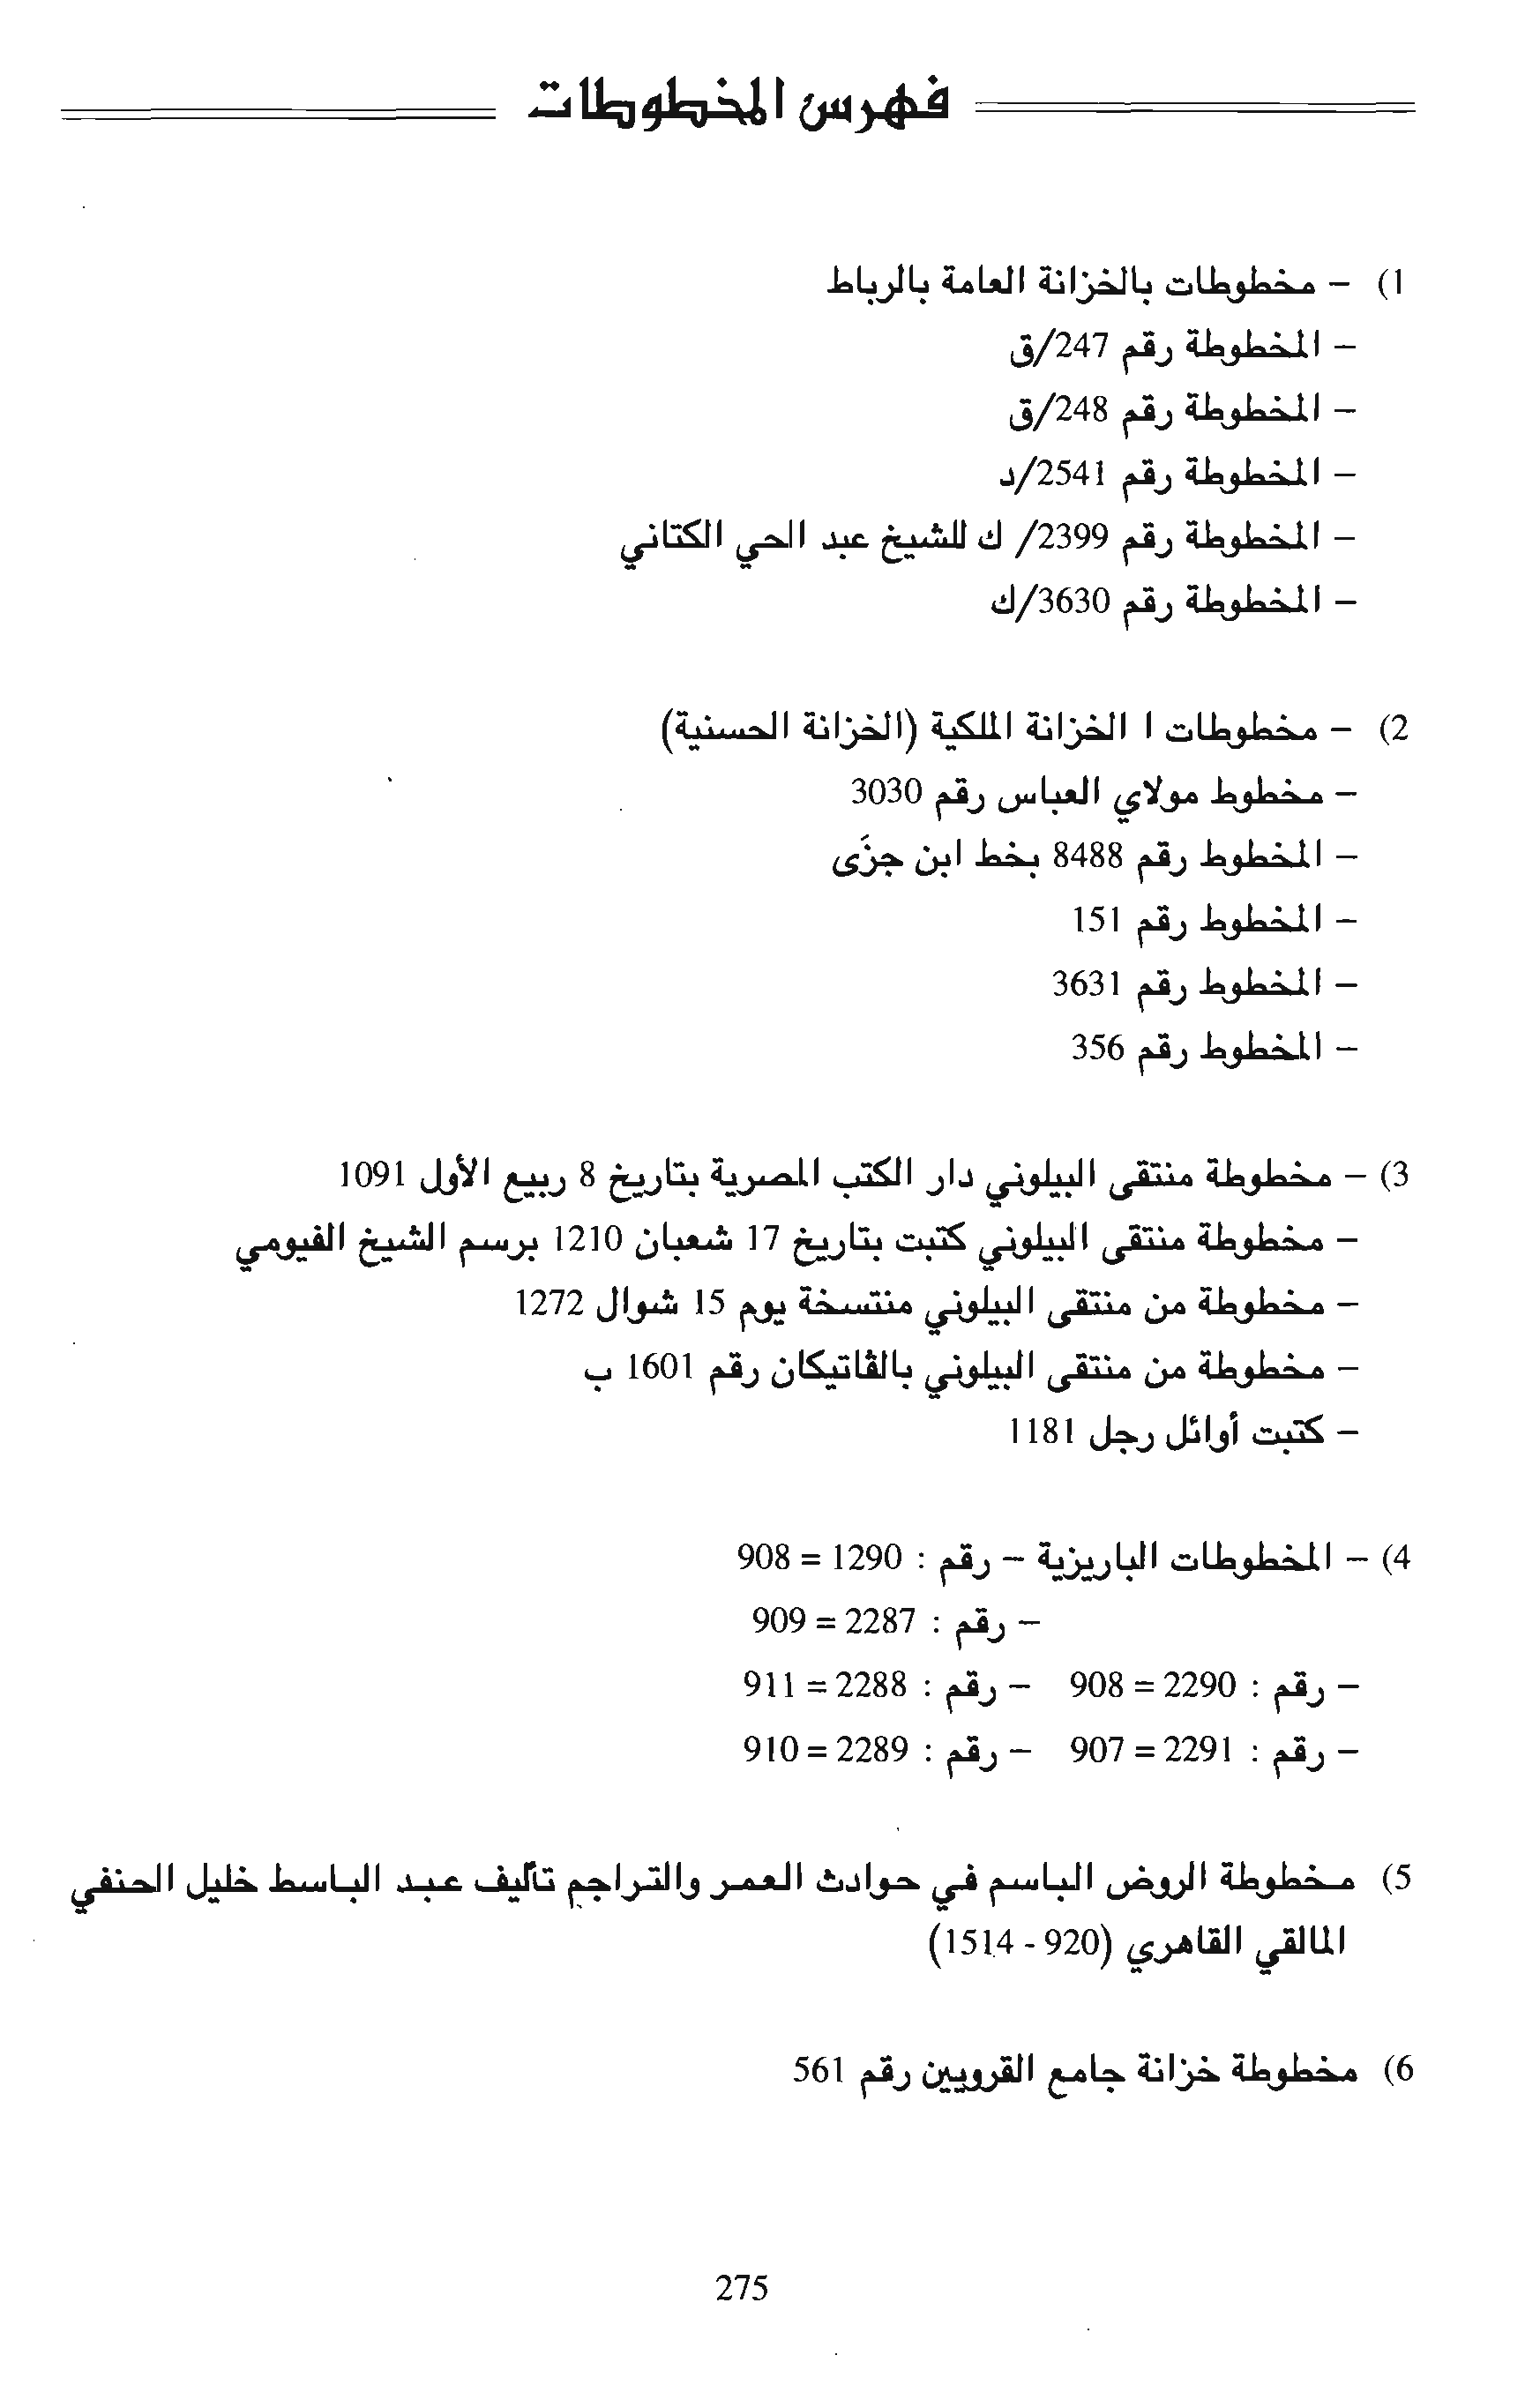 فهرس المخطوطات
1) - مخطوطات بالخزانة العامة بالرباط
- المخطوطة رقم 247/ق
- المخطوطة رقم 248/ق
- المخطوطة رقم 2541/د
- المخطوطة رقم 2399/ ك للشيخ عبد الحي الكتاني
- المخطوطة رقم 3630/ك
2) - مخطوطات ا الخزانة الملكية (الخزانة الحسنية)
- مخطوط مولاي العباس رقم 3030
- المخطوط رقم 8488 بخط ابن جزَى
- المخطوط رقم 151
- المخطوط رقم 3631
- المخطوط رقم 356
3) - مخطوطة منتقى البيلوني دار الكتب المصرية بتاريخ 8 ربيع الأول 1091
- مخطوطة منتقى البيلوني كتبت بتاريخ 17 شعبان 1210 برسم الشيخ الفيومي
- مخطوطة من منتقى البيلوني منتسخة يوم 15 شوال 1272
- مخطوطة من منتقى البيلوني بالڤاتيكان رقم 1601 ب
- كتبت أوائل رجل 1181
4) - المخطوطات الباريزية - رقم : 1290 = 908
- رقم : 2287 = 909
- رقم : 2290 = 908 - رقم : 2288 = 911
- رقم : 2291 = 907 - رقم : 2289 = 910
5) مخطوطة الروض الباسم في حوادث العمر والتراجم تأليف عبد الباسط خليل الحنفي
المالقي القاهري (920 - 1514)
6) مخطوطة خزانة جامع القرويين رقم 561
275